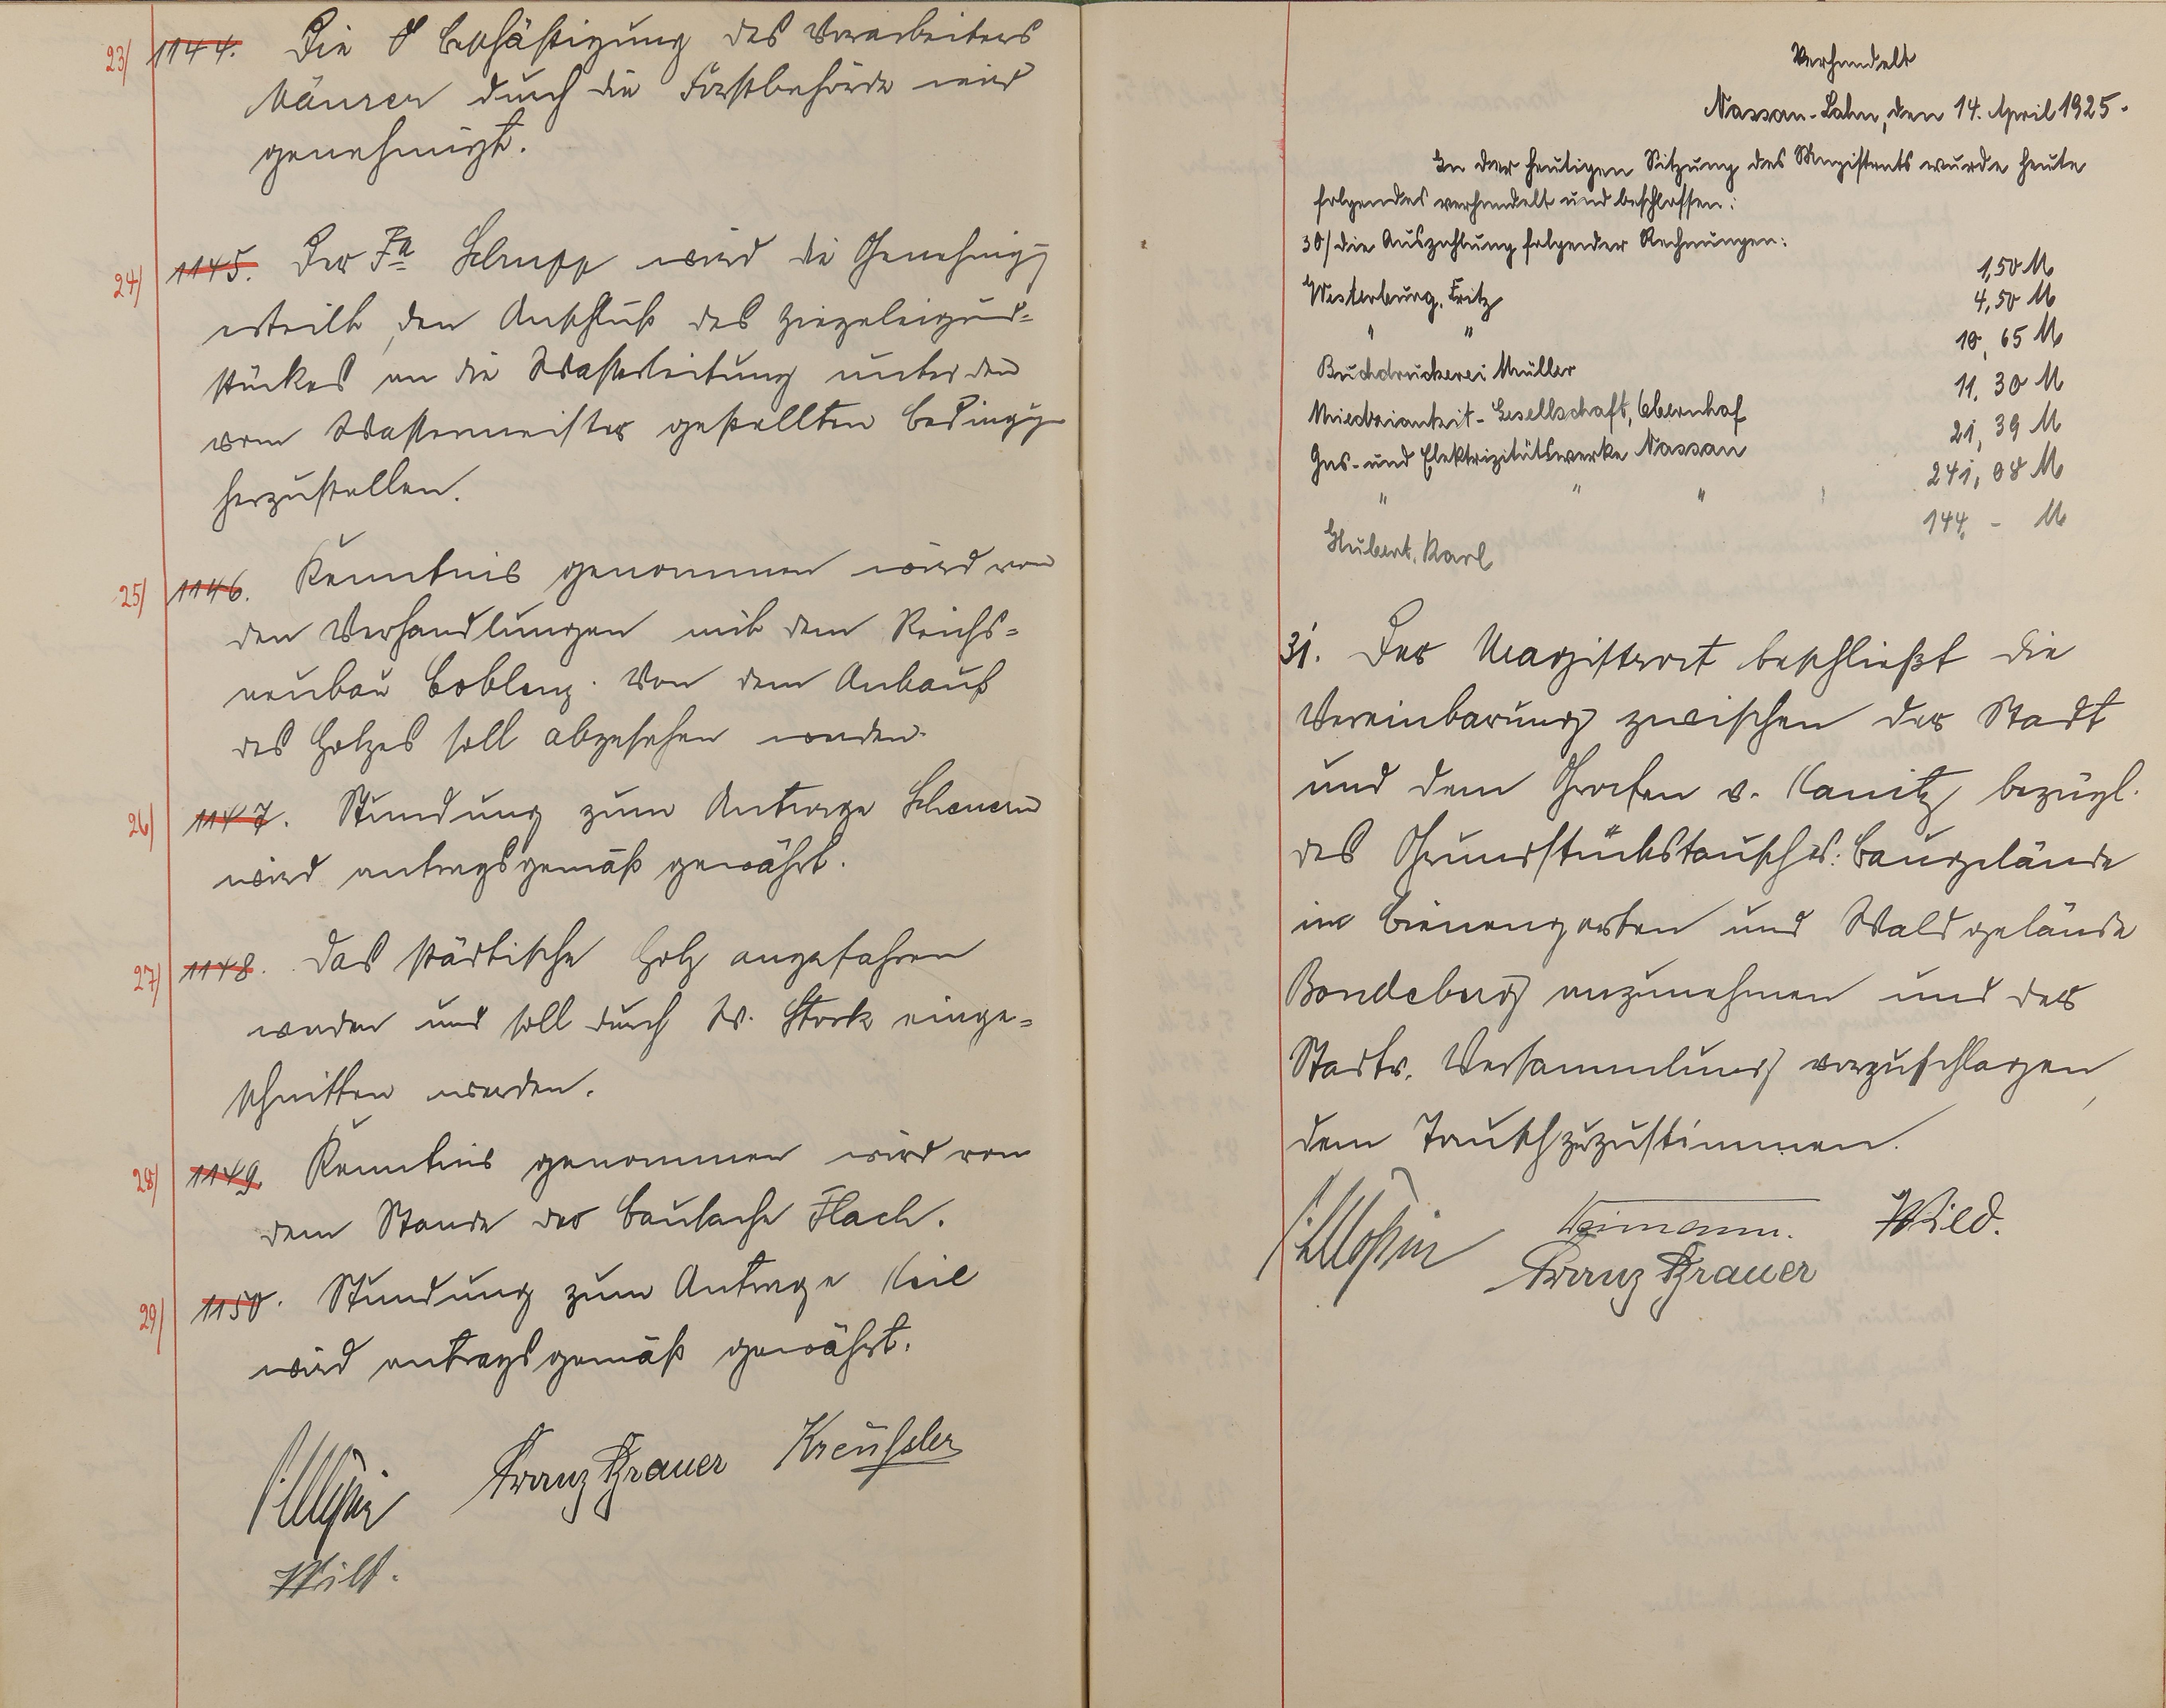 23/ 1144. Die Beschäftigung des Vorarbeiters
Mäurer durch die Forstbehörde wird
genehmigt.
24/ 1145. Der Fa Schupp wird die Genehmigg
erteilt, den Anschluß des Ziegeleigrund-
stückes an die Wasserleitung unter den
vom Wassermeister gestellten Bedingg
herzustellen.
25/ 1146. Kenntnis genommen wird von
den Verhandlungen mit dem Reichs-
neubau Coblenz. Von dem Ankauf
des Holzes soll abgesehen werden.
26/ 1147. Stundung zum Antrage Scheuern
wird antragsgemäß gewährt.
27/ 1148. Das städtische Holz angefahren
werden und soll durch W. Stork einge-
schnitten werden.
28/ 1149. Kenntnis genommen wird von
dem Stande der Bausache Flach.
29/ 1150. Stundung zum Antrage Keil
wird antragsgemäß gewährt.
Franz Brauer Kreußler
Wild.
Verhandelt
Nassau-Lahn, den 14. April 1925.
In der heutigen Sitzung des Magistrats wurde heute
folgendes verhandelt und beschlossen:
30/ die Auszahlung folgender Rechnungen:
Westerburg, Fritz 1,50 M
" " 4,50 M
Buchdruckerei Müller 10,65 M
Gesellschaft, Obernhof 11.30 M
Gas- und Elektrizitätswerke Nassau 21,39 M
" " " " 241,08 M
Hubert, Karl 144,- M
31. Der Magistrat beschließt die
Vereinbarung zwischen der Stadt
und dem Grafen v. Kanitz bezügl.
des Grundstückstausches: Baugelände
im Bienengarten und Waldgelände
Bondeburg anzunehmen und der
Stadtv. Versammlung vorzuschlagen,
dem Tausch zuzustimmen.
Wild.
Franz Brauer